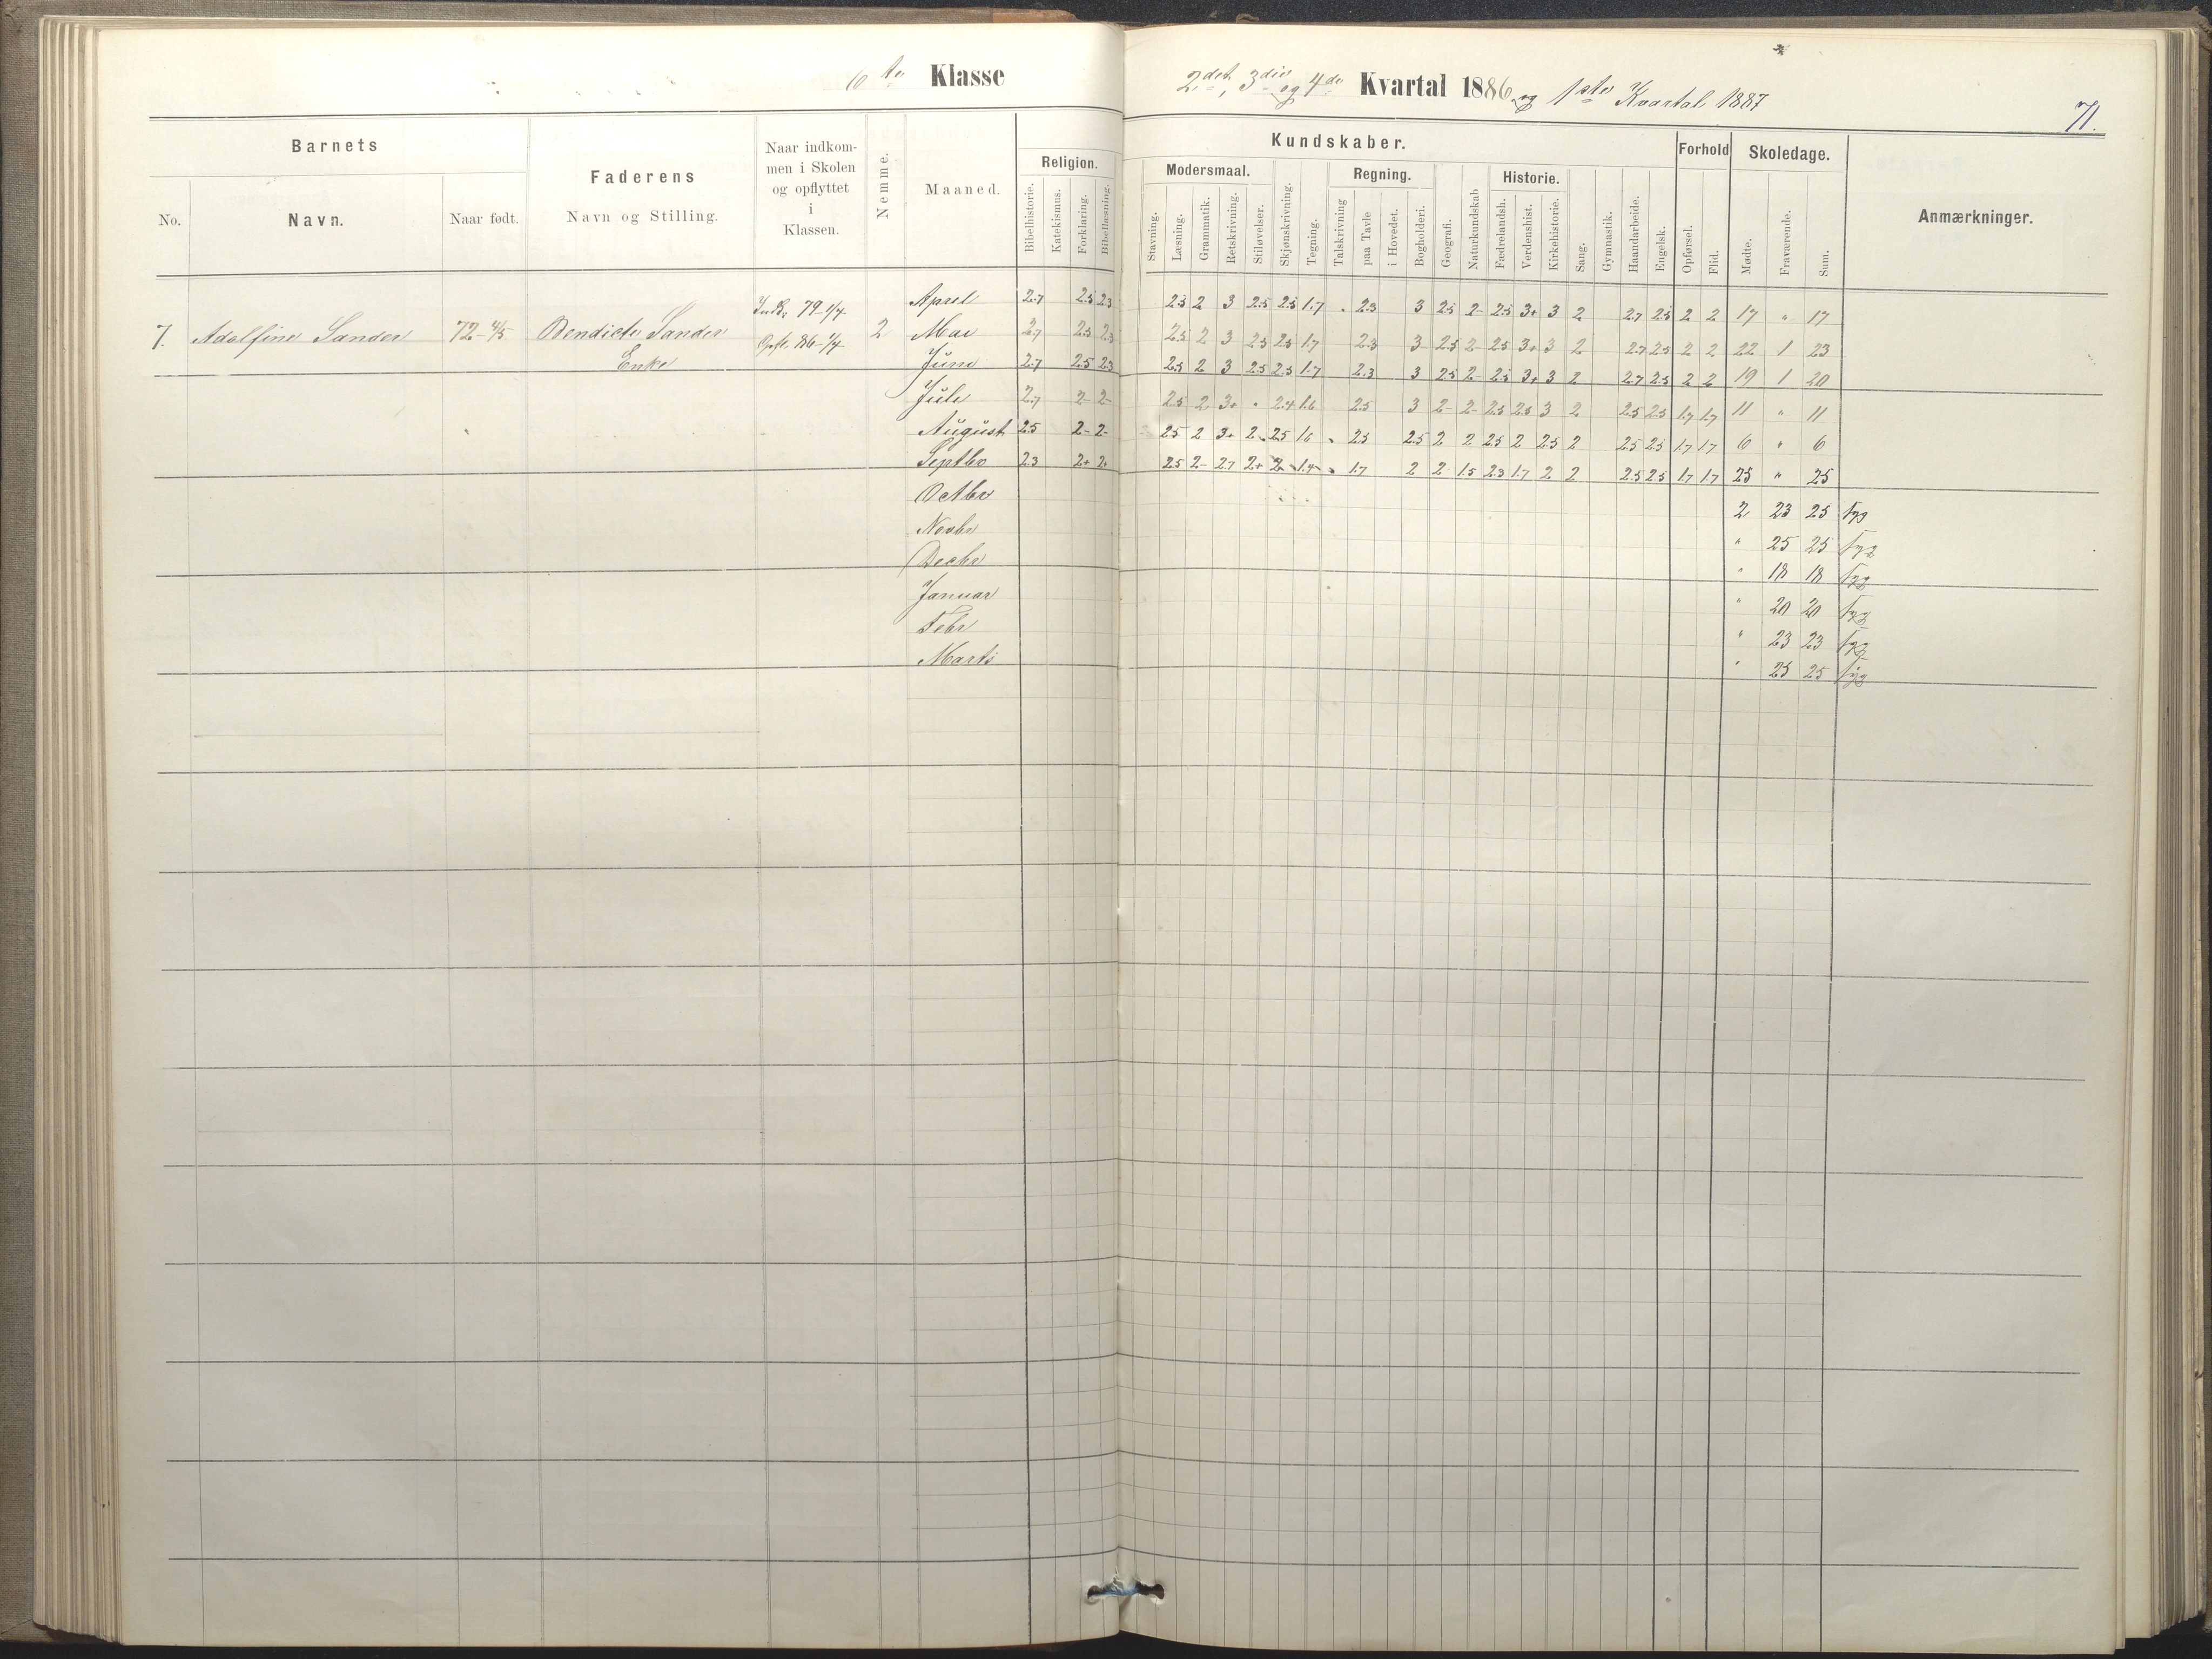 6te Klasse
2det, 3die og 4de Kvartal 1886 og 1ste Kvartal 1887
71.
Barnets
No.
Navn.
Naar født.
Faderens
Navn og Stilling.
Naar indkom-
men i Skolen
og opflyttet
i
Klassen.
Nemme.
Maaned.
Kundskaber.
Religion.
Bibelhistorie.
Katekismus.
Forklaring.
Bibellæsning.
Modersmaal.
Stavning.
Læsning.
Grammatik.
Retskrivning.
Stiløvelser.
Skjønskrivning.
Tegning.
Regning.
Talskrivning
paa Tavle
i Hovedet.
Bogholderi.
Geografi.
Naturkundskab
Historie.
Fædrelandsh.
Verdenshist.
Kirkehistorie.
Sang.
Gymnastik.
Haandarbeide.
Engelsk.
Forhold
Opførsel.
Flid.
Skoledage.
Mødte.
Fraværende.
Sum.
Anmærkninger.
7. Adolfine Sander 72-4/5 Bendicte Sander
Enke
Indk. 79-1/4
Opfl. 86-1/4
2
April 2.7 2.5 2.3 2.5 2 3 2.5 2.5 1.7 " 2.3 3 2.5 2- 2.5 3+ 3 2 2.7 2.5 2 2 17 " 17
Mai 2.7 2.5 2.3 2.5 2 3 2.5 2.5 1.7 2.3 3 2.5 2- 2.5 3+ 3 2 2.7 2.5 2 2 22 1 23
Juni 2.7 2.5 2.3 2.5 2 3 2.5 2.5 1.7 2.3 3 2.5 2- 2.5 3+ 3 2 2.7 2.5 2 2 19 1 20
Juli 2.7 2- 2- 2.5 2 3+ " 2.4 1.6 2.5 3 2- 2- 2.5 2.5 3 2 2.5 2.5 1.7 1.7 11 " 11
August 2.5 2- 2- 2.5 2 3+ 2 2.5 1.6 " 2.5 2.5 2 2 2.5 2 2.5 2 2.5 2.5 1.7 1.7 6 " 6
Septbr 2.3 2+ 2+ 2.5 2- 2.7 2+ 2 1.4 " 1.7 2 2 1.5 2.3 1.7 2 2 2.5 2.5 1.7 1.7 25 " 25
Octbr 2 23 25 syg
Novbr " 25 25 syg
Decbr " 18 18 syg
Januar " 20 20 syg
Febr " 23 23 syg
Marts " 25 25 syg